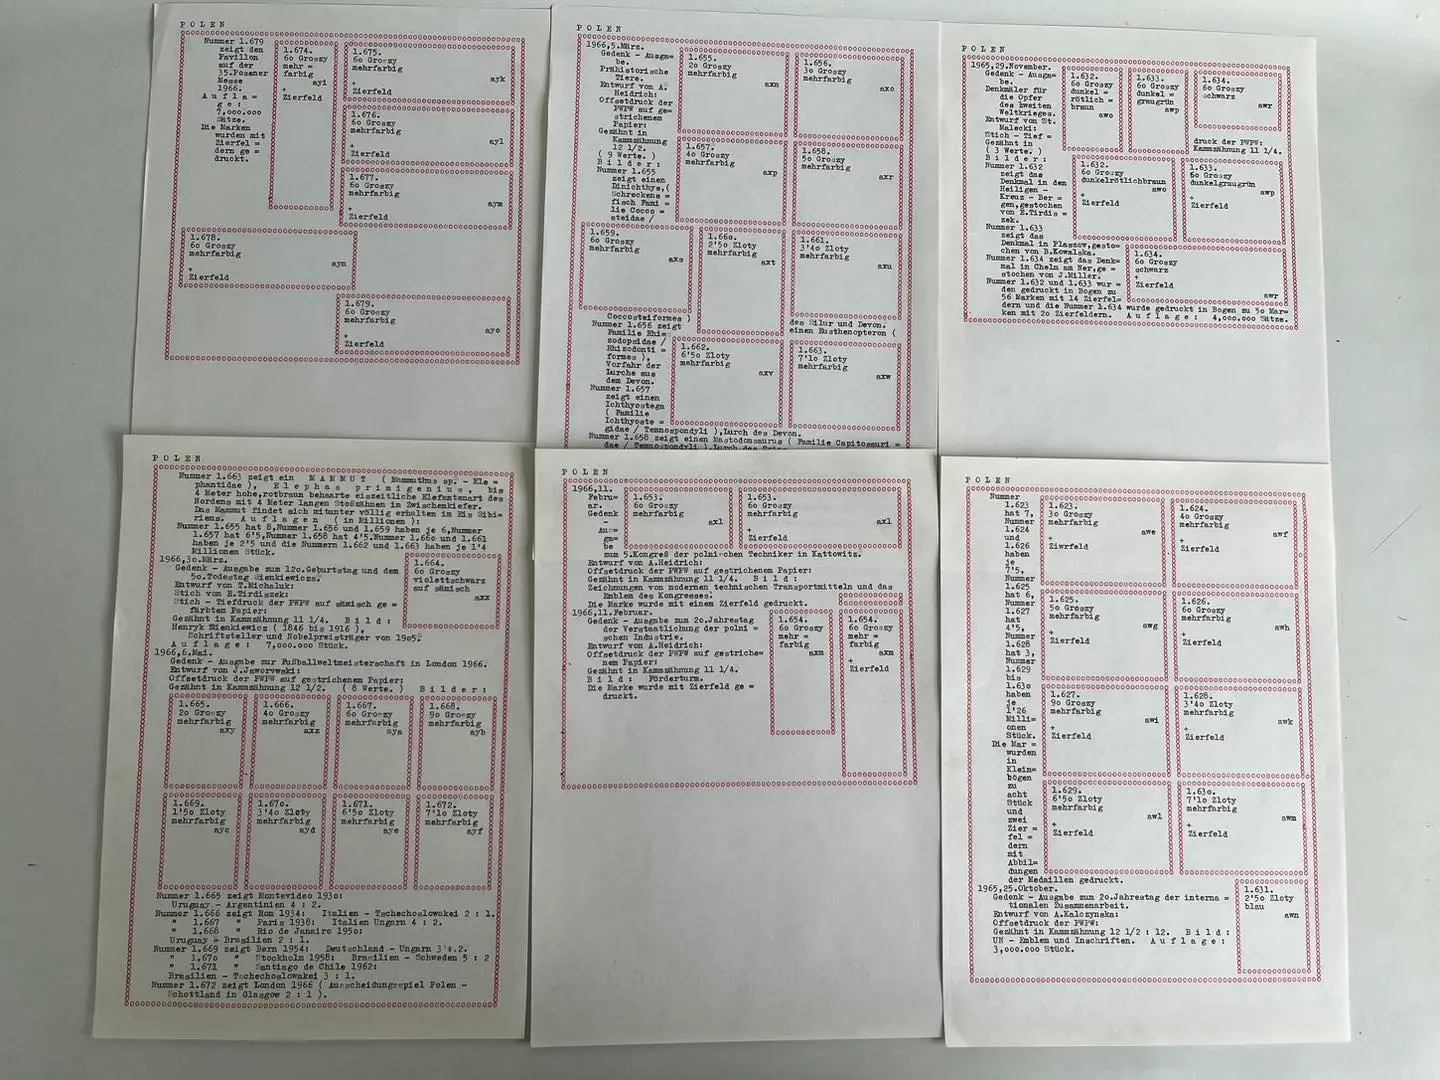 P O L E N
Nummer 1.679
zeigt den
Pavillon
auf der
35.Posener
Messe
1966.
A u f l a =
g e :
7,000.000
Sätze.
Die Marken
wurden mit
Zierfel =
dern ge =
druckt.
1.674.
60 Groszy
mehr =
farbig
ayi
+
Zierfeld
1.675.
60 Groszy
mehrfarbig
ayk
+
Zierfeld
1.676.
60 Groszy
mehrfarbig
ayl
+
Zierfeld
1.677.
60 Groszy
mehrfarbig
aym
+
Zierfeld
1.678.
60 Groszy
mehrfarbig
ayn
+
Zierfeld
1.679.
60 Groszy
mehrfarbig
ayo
+
Zierfeld
P O L E N
1966,5.März.
Gedenk - Ausga=
be.
Prähistorische
Tiere.
Entwurf von A.
Heidrich:
Offsetdruck der
PWPW auf ge=
strichenem
Papier:
Gezähnt in
Kammzähnung
12 1/2.
( 9 Werte. )
B i l d e r :
Nummer 1.655
zeigt einen
Dinichthys,(
Schreckens =
fisch Fami =
lie Cocco =
steidae /
1.655.
20 Groszy
mehrfarbig
axn
1.656.
30 Groszy
mehrfarbig
axo
1.657.
40 Groszy
mehrfarbig
axp
1.658.
50 Groszy
mehrfarbig
axr
1.659.
60 Groszy
mehrfarbig
axs
1.660.
2'50 Zloty
mehrfarbig
axt
1.661.
3'40 Zloty
mehrfarbig
axu
Coccosteiformes )
des Silur und Devon.
Nummer 1.656 zeigt
einen Eusthenopteron (
Familie Rhi=
zodopsidae /
Rhizodonti =
formes ),
Vorfahr der
Lurche aus
dem Devon.
Nummer 1.657
zeigt einen
Ichthyostega
( Familie
Ichthyoste =
gidae / Temnospondyli ),Lurch des Devon.
Nummer 1.658 zeigt einen Mastodonsaurus ( Familie Capitosauri =
dae / Temnospondyli ),Lurch des Trias.
1.662.
6'50 Zloty
mehrfarbig
axv
1.663.
7'10 Zloty
mehrfarbig
axw
P O L E N
1965,29.November.
Gedenk - Ausga=
be.
Denkmäler für
die Opfer
des Zweiten
Weltkrieges.
Entwurf von St.
Malecki:
Stich - Tief =
druck der PWPW:
Gezähnt in
Kammzähnung 11 1/4.
( 3 Werte. )
B i l d e r :
Nummer 1.632
zeigt das
Denkmal in den
Heiligen -
Kreuz - Ber =
gen,gestochen
von E.Tirdis =
zek.
Nummer 1.633
zeigt das
Denkmal in Plaszow,gesto=
chen von B.Kowalska.
Nummer 1.634 zeigt das Denk=
mal in Chelm am Ner,ge =
stochen von J.Miller.
Nummer 1.632 und 1.633 wur =
den gedruckt in Bogen zu
56 Marken mit 14 Zierfel=
dern und die Nummer 1.634 wurde gedruckt in Bogen zu 50 Mar=
ken mit 20 Zierfeldern. A u f l a g e : 4,000.000 Sätze.
1.632.
60 Groszy
dunkel =
rötlich =
braun
awo
1.633.
60 Groszy
dunkel =
graugrün
awp
1.634.
60 Groszy
schwarz
awr
1.632.
60 Groszy
dunkelrötlichbraun
awo
+
Zierfeld
1.633.
60 Groszy
dunkelgraugrün
awp
+
Zierfeld
1.634.
60 Groszy
schwarz
+
Zierfeld
awr
P O L E N
Nummer 1.663 zeigt ein M A M M U T ( Mammuthus sp. - Ele =
phantidae ), E l e p h a s p r i m i g e n i u s , bis
4 Meter hohe,rotbraun behaarte eiszeitliche Elefantenart des
Nordens mit 4 Meter langen Stoßzähnen im Zwischenkiefer.
Das Mammut findet sich mitunter völlig erhalten im Eis Sibi=
riens. A u f l a g e n ( in Millionen ):
Nummer 1.655 hat 8,Nummer 1.656 und 1.659 haben je 6,Nummer
1.657 hat 6'5,Nummer 1.658 hat 4'5.Nummer 1.660 und 1.661
haben je 2'5 und die Nummern 1.662 und 1.663 haben je 1'4
Millionen Stück.
1966,30.März.
Gedenk - Ausgabe zum 120.Geburtstag und dem
50.Todestag Sienkiewiczs.
Entwurf von T.Michaluk:
Stich von E.Tirdiszek:
Stich - Tiefdruck der PWPW auf sämisch ge =
färbtem Papier:
Gezähnt in Kammzähnung 11 1/4. B i l d :
Henryk Sienkiewicz ( 1846 bis 1916 ),
Schriftsteller und Nobelpreisträger von 1905.
A u f l a g e : 7,000.000 Stück.
1.664.
60 Groszy
violettschwarz
auf sämisch
axx
1966,6.Mai.
Gedenk - Ausgabe zur Fußballweltmeisterschaft in London 1966.
Entwurf von J.Jaworwski:
Offsetdruck der PWPW auf gestrichenem Papier:
Gezähnt in Kammzähnung 12 1/2. ( 8 Werte. ) B i l d e r :
1.665.
20 Groszy
mehrfarbig
axy
1.666.
40 Groszy
mehrfarbig
axz
1.667.
60 Groszy
mehrfarbig
aya
1.668.
90 Groszy
mehrfarbig
ayb
1.669.
1'50 Zloty
mehrfarbig
ayc
1.670.
3'40 Zloty
mehrfarbig
ayd
1.671.
6'50 Zloty
mehrfarbig
aye
1.672.
7'10 Zloty
mehrfarbig
ayf
Nummer 1.665 zeigt Montevideo 1930:
Uruguay - Argentinien 4 : 2.
Nummer 1.666 zeigt Rom 1934: Italien - Tschechoslowakei 2 : 1.
" 1.667 " Paris 1938: Italien Ungarn 4 : 2.
" 1.668 " Rio de Janairo 1950:
Uruguay - Brasilien 2 : 1.
Nummer 1.669 zeigt Bern 1954: Deutschland - Ungarn 3 : 2.
" 1.670 " Stockholm 1958: Brasilien - Schweden 5 : 2
" 1.671 " Santiago de Chile 1962:
Brasilien - Tschechoslowakei 3 : 1.
Nummer 1.672 zeigt London 1966 ( Ausscheidungsspiel Polen -
Schottland in Glasgow 2 : 1 ).
P O L E N
1966,11.
Febru=
ar.
Gedenk
-
Aus=
ga=
be
zum 5.Kongreß der polnischen Techniker in Kattowitz.
Entwurf von A.Heidrich:
Offsetdruck der PWPW auf gestrichenem Papier:
Gezähnt in Kammzähnung 11 1/4. B i l d :
Zeichnungen von modernen technischen Transportmitteln und das
Emblem des Kongresses.
Die Marke wurde mit einem Zierfeld gedruckt.
1.653.
60 Groszy
mehrfarbig
axl
1.653.
60 Groszy
mehrfarbig
axl
+
Zierfeld
1966,11.Februar.
Gedenk - Ausgabe zum 20.Jahrestag
der Verstaatlichung der polni =
schen Industrie.
Entwurf von A.Heidrich:
Offsetdruck der PWPW auf gestriche=
nem Papier:
Gezähnt in Kammzähnung 11 1/4.
B i l d : Förderturm.
Die Marke wurde mit Zierfeld ge =
druckt.
1.654.
60 Groszy
mehr =
farbig
axm
1.654.
60 Groszy
mehr =
farbig
axm
+
Zierfeld
P O L E N
Nummer
1.623
hat 7,
Nummer
1.624
und
1.626
haben
je
7'5,
Nummer
1.625
hat 6,
Nummer
1.627
hat
4'5,
Nummer
1.628
hat 3,
Nummer
1.629
bis
1.630
haben
je
1'26
Milli=
onen
Stück.
Die Mar =
wurden
in
Klein=
bögen
zu
acht
Stück
und
zwei
Zier =
fel =
dern
mit
Abbil=
dungen
der Medaillen gedruckt.
1.623.
30 Groszy
mehrfarbig
awe
+
Ziwrfeld
1.624.
40 Groszy
mehrfarbig
awf
+
Zierfeld
1.625.
50 Groszy
mehrfarbig
awg
+
Zierfeld
1.626.
60 Groszy
mehrfarbig
awh
+
Zierfeld
1.627.
90 Groszy
mehrfarbig
awi
+
Zierfeld
1.628.
3'40 Zloty
mehrfarbig
awk
+
Zierfeld
1.629.
6'50 Zloty
mehrfarbig
awl
+
Zierfeld
1.630.
7'10 Zloty
mehrfarbig
awm
+
Zierfeld
1965,25.Oktober.
Gedenk - Ausgabe zum 20.Jahrestag der interna =
tionalen Zusammenarbeit.
Entwurf von A.Kalczynska:
Offsetdruck der PWPW:
Gezähnt in Kammzähnung 12 1/2 : 12. B i l d :
UN - Emblem und Inschriften. A u f l a g e :
3,000.000 Stück.
1.631.
2'50 Zloty
blau
awn